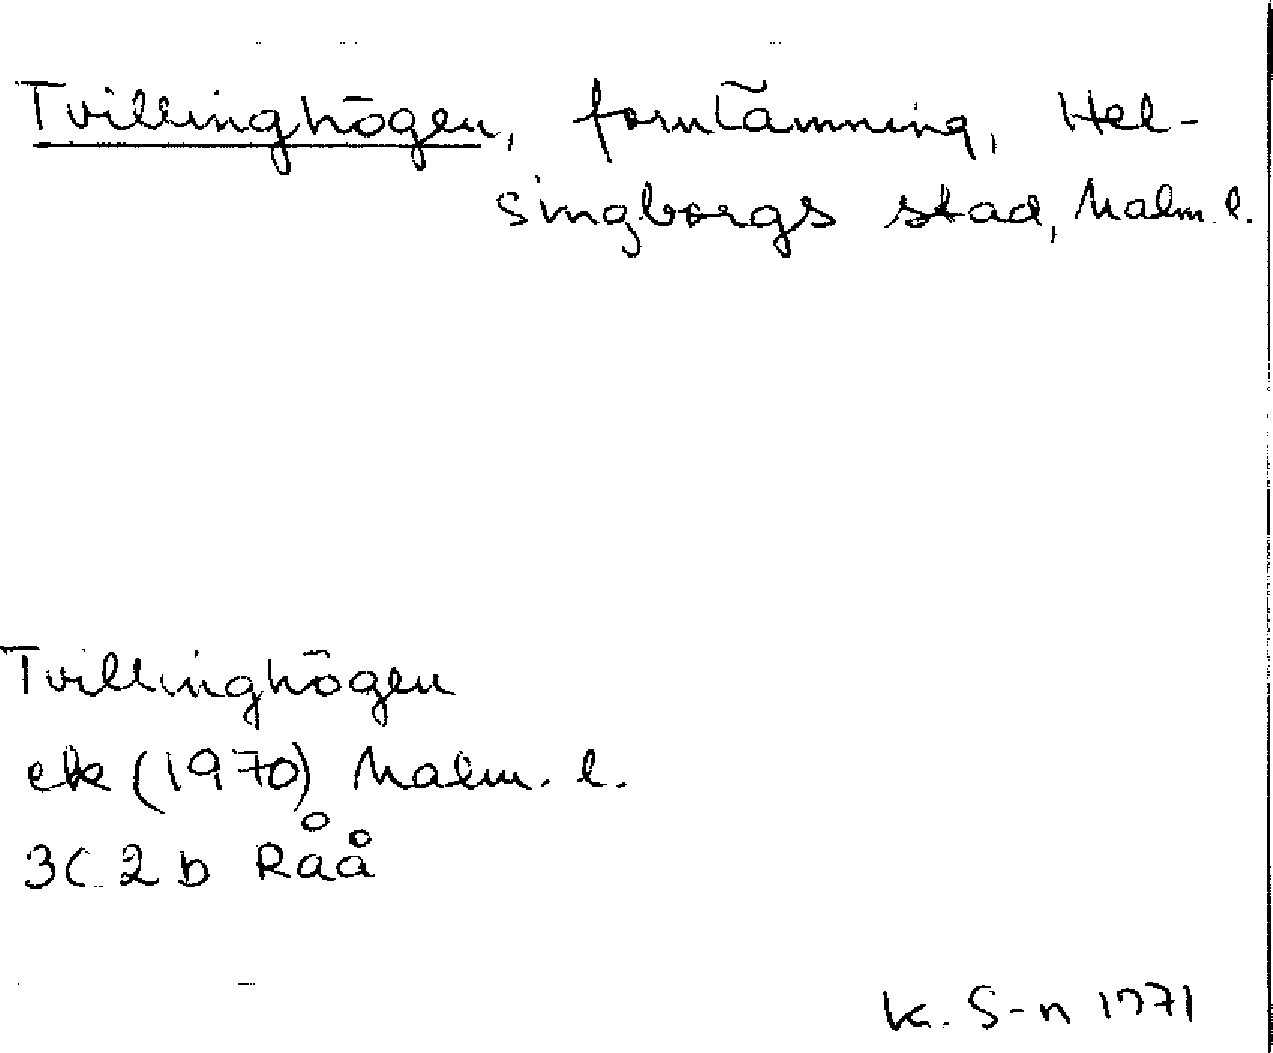 Tvillinghögen, fornlämning, Hel-
singborgs stad, Malm. l.
Tvillinghögen
ek (1970) Malm. l.
3C 2b Råå
K. S-n 1971